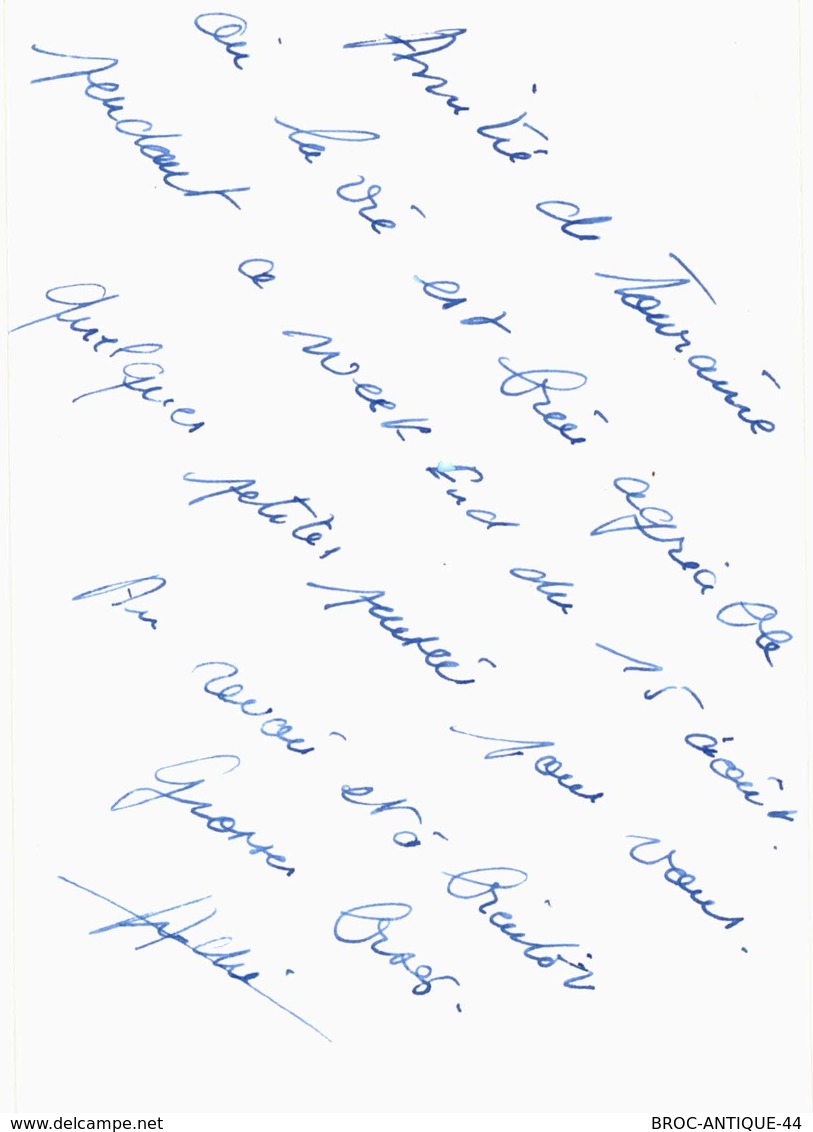 Amitié de Touraine
où la vie est bien agréable
pendant ce week end du 15 août.
quelques petites pensées pour vous.
Au revoir et à bientôt
Grosses bises.
www.delcampe.net
BROC-ANTIQUE-44